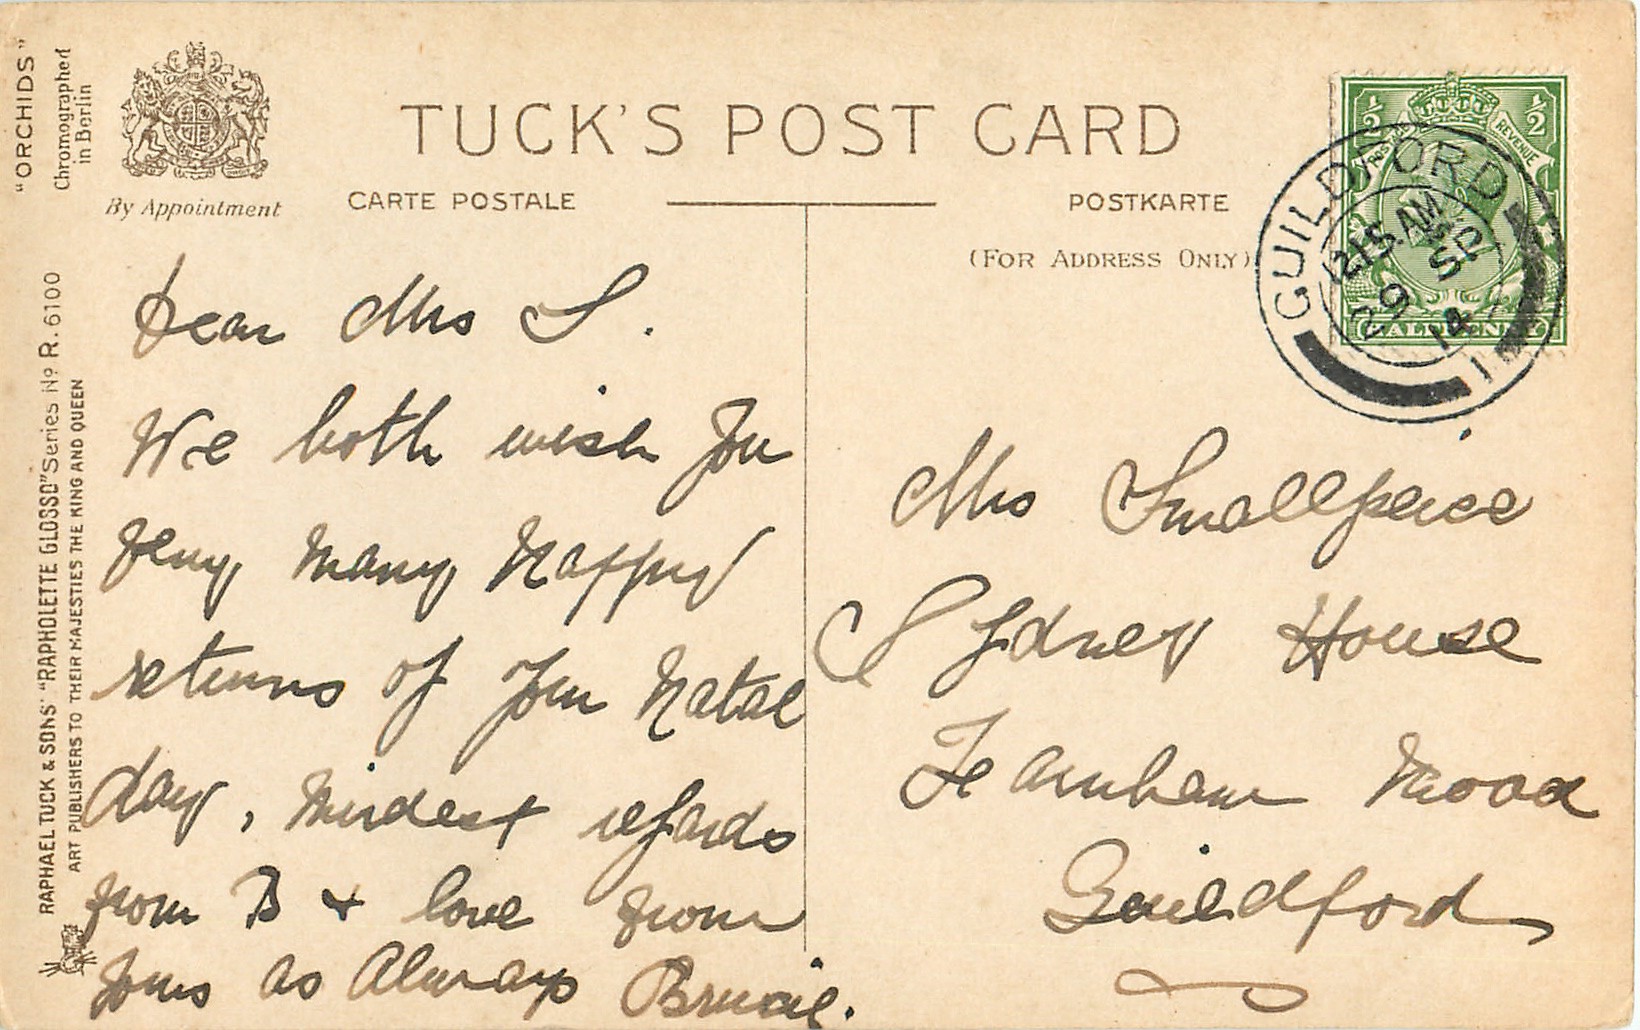 "ORCHIDS"
Chromographed
in Berlin
By Appointment
TUCK'S POST CARD
CARTE POSTALE
POSTKARTE
(FOR ADDRESS ONLY)
RAPHAEL TUCK & SONS' "RAPHOLETTE GLOSSO" Series No R. 6100
ART PUBLISHERS TO THEIR MAJESTIES THE KING AND QUEEN
½ ½
POSTAGE REVENUE
HALFPENNY
GUILDFORD
1215 AM
29 SP
14
1
Dear Mrs S.
We both wish you
very many happy
returns of your Natal
day, kindest regards
from B & love from
yours as Always
Mrs Smallpeice
Sydney House
Farnham Road
Guildford